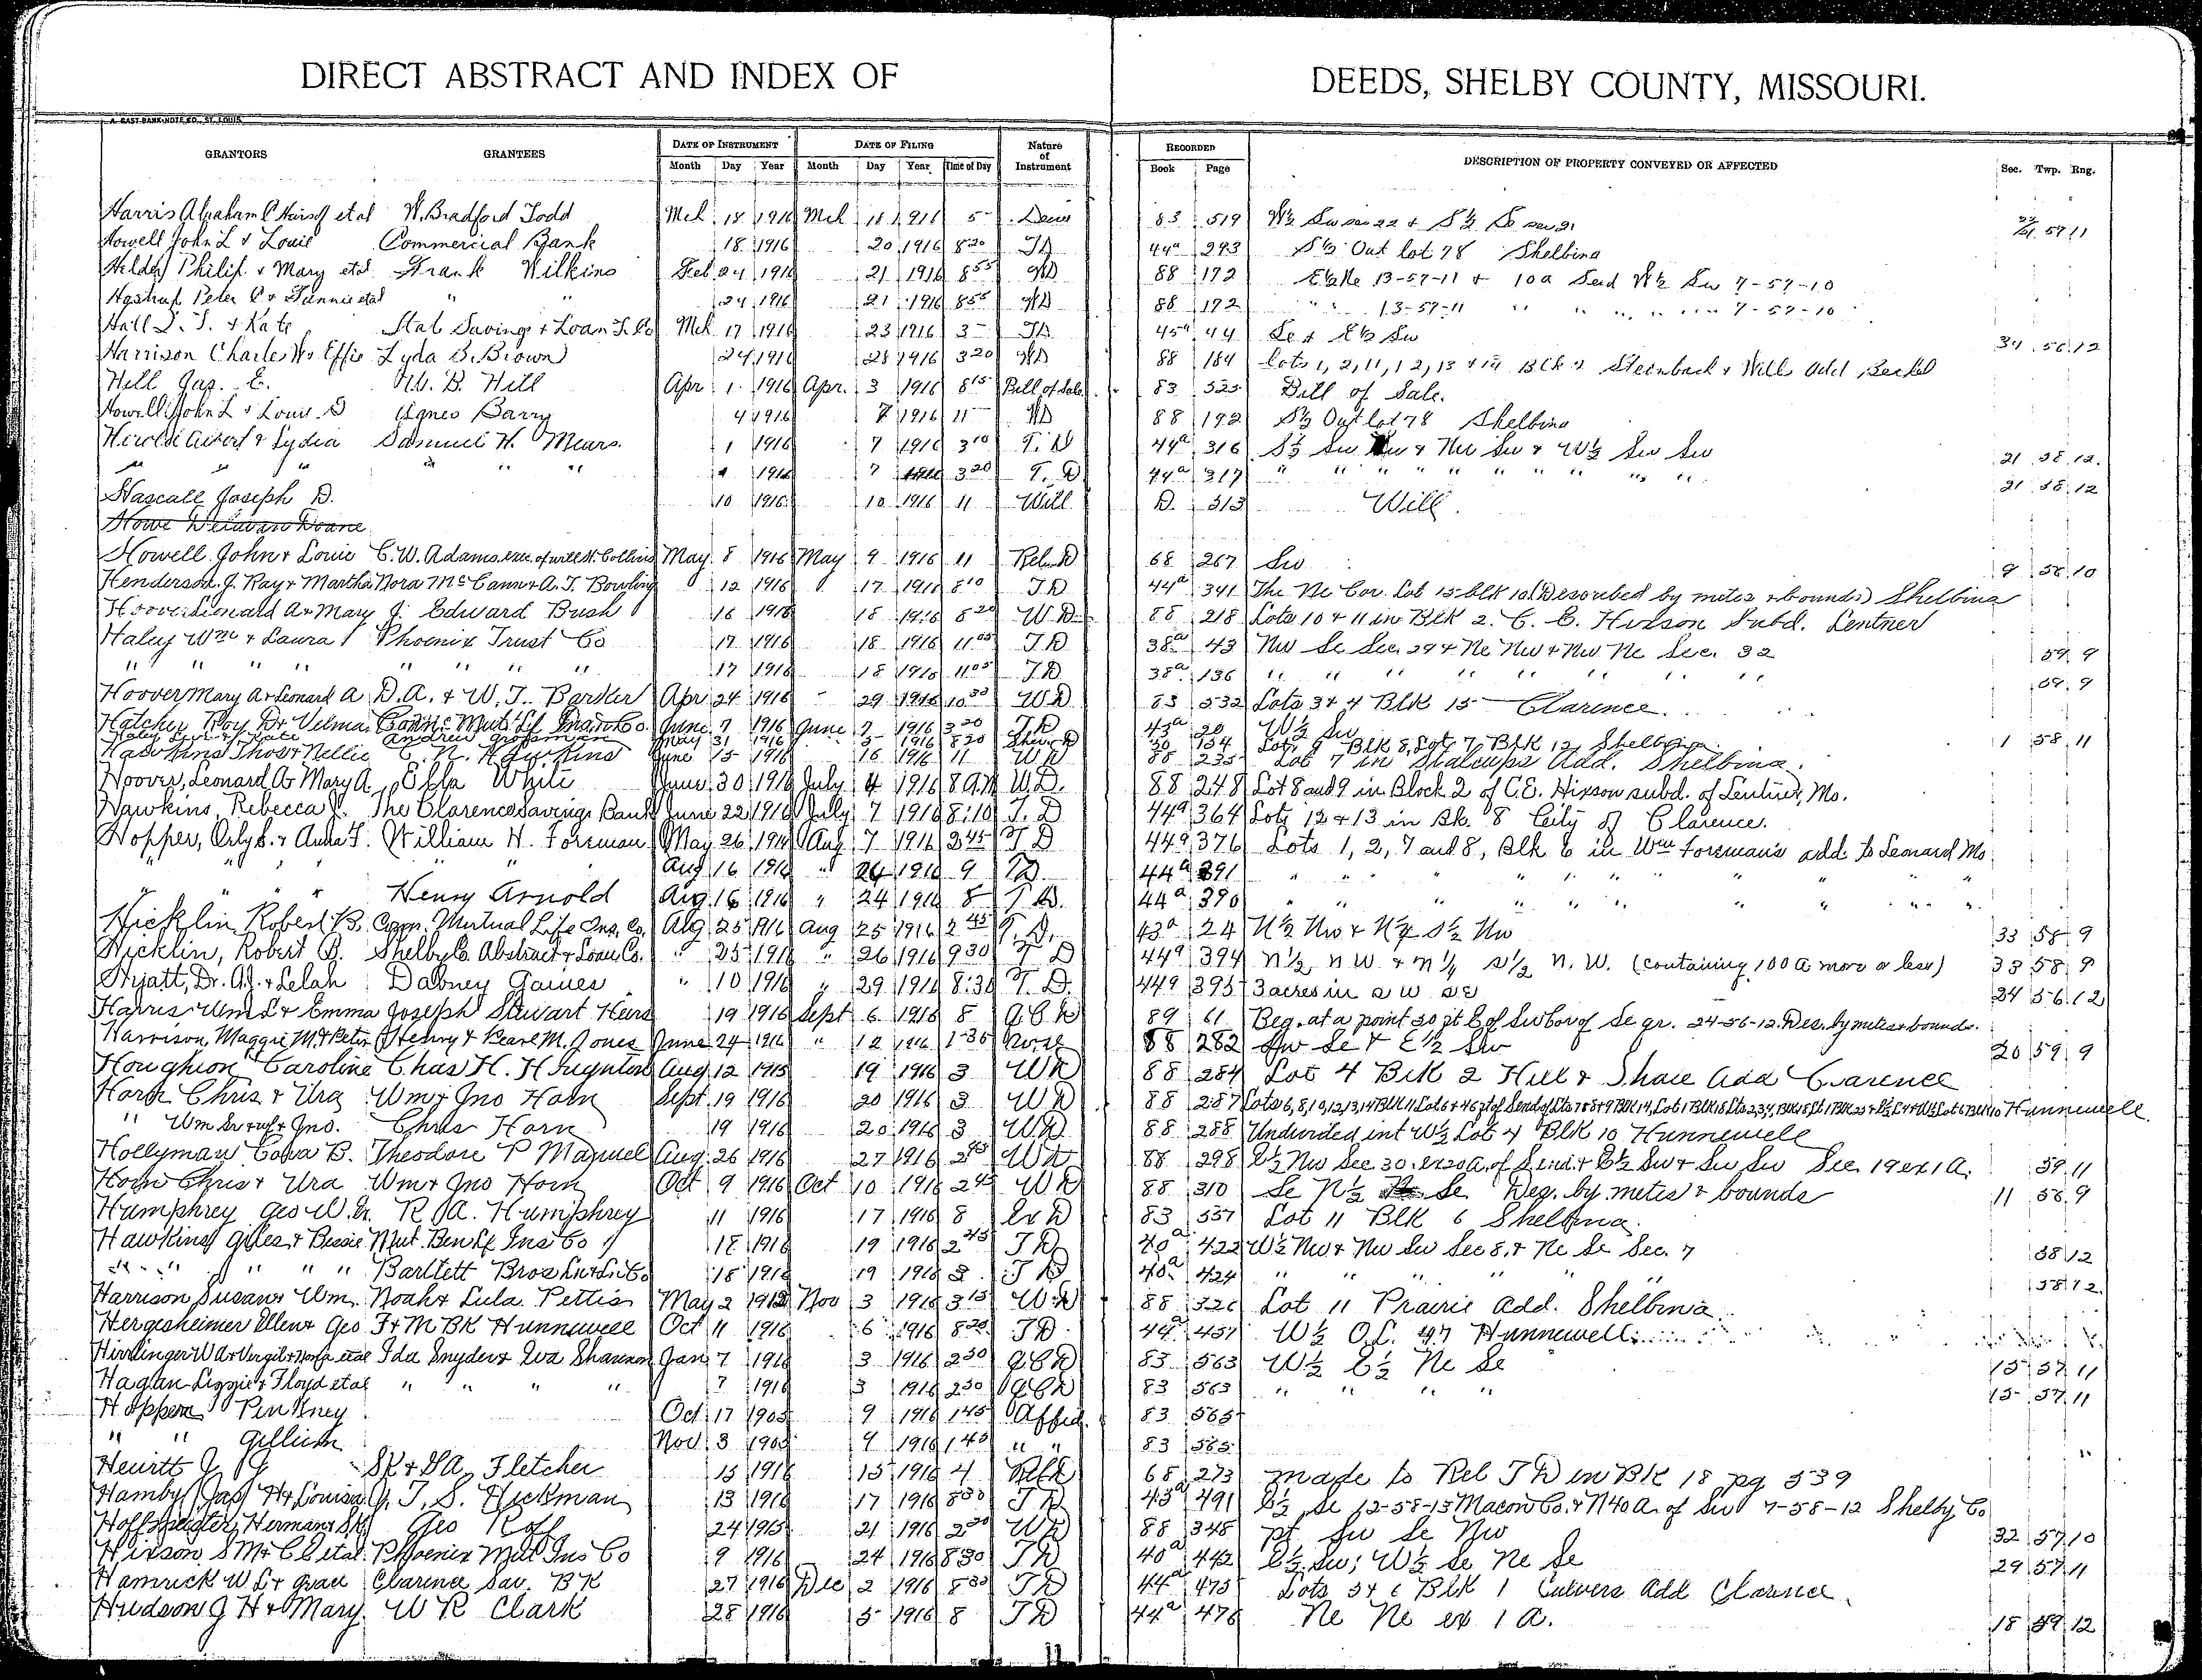 DIRECT ABSTRACT AND INDEX OF DEEDS, SHELBY COUNTY, MISSOURI.
GRANTORS GRANTEES DATE OF INSTRUMENT DATE OF FILING Nature of Instrument RECORDED DESCRIPTION OF PROPERTY CONVEYED OR AFFECTED Sec. Twp. Rng.
Month Day Year Month Day Year Time of Day Book Page
Harris Abraham et al W. Bradford Todd Mch 18 1916 Mch 18 1916 5 83 519 W½ Sw sec 22 + S½ Se sec 21 57 11
Howell John L + Louie Commercial Bank 18 1916 20 1916 8 20 TD 44a 293 S½ Out lot 78 Shelbina
Helder Philip + Mary etal Frank Wilkins Feb 24 1916 21 1916 8 55 WD 88 172 E½ Ne 13-57-11 + 10a Send W½ Sw 7-57-10
Peter + Fannie etal " " 24 1916 21 1916 8 55 WD 88 172 " " 13-57-11 " " " " 7-57-10
Hall + Kate State Savings + Loan T. Co Mch 17 1916 23 1916 3 TD 45a 44 Se + E½ Sw 34 56 12
Harrison Charles W + Effie Lyda B. Brown 24 1916 28 1916 3 20 WD 88 184 Lots 1, 2, 11, 12, 13 + 14 Blk 2 Steinbach + Wills add
Hill Jas. E. W. B. Hill Apr 1 1916 Apr. 3 1916 8 15 Bill of Sale 83 525 Bill of Sale.
Howell John L + Louie D Agnes Barry 4 1916 7 1916 11 WD 88 192 S½ Out lot 78 Shelbina
Herold Albert + Lydia Samuel H. Mears. 1 1916 7 1916 3 10 T. D 44a 316 S½ Sw Nw + Nw Sw + W½ Sw Sw 21 58 12.
" " " " " " 1 1916 7 1916 3 20 T. D 44a 317 " " " " " " " " 21 58 12
Hascall Joseph D. 10 1916 10 1916 11 Will D. 313 Will.
Howe Delavan Doane
Howell John + Louie C. W. Adams exe. of will H. Collins May 8 1916 May 9 1916 11 Rel. D 68 267 Sw 9 58 10
Henderson J. Ray + Martha Nora McCann + A. T. Bowling 12 1916 17 1916 8 10 TD 44a 341 The Ne Cor. Lot 15 blk 10 (Described by metes + bounds) Shelbina
Hoover Leonard A + Mary J. Edward Bush 16 1916 18 1916 8 20 W D 88 218 Lots 10 + 11 in Blk 2. C. E. Hixson Subd. Lentner
Haley Wm + Laura Phoenix Trust Co 17 1916 18 1916 11 05 T D 38a 43 Nw Se Sec. 29 + Ne Nw + Nw Ne Sec. 32 59 9
" " " " " " " " 17 1916 18 1916 11 05 T D 38a 136 " " " " " " " " 59 9
Hoover Mary A + Leonard A D. A. + W. T. Barker Apr 24 1916 29 1916 10 30 WD 83 532 Lots 3 + 4 Blk 15 Clarence.
Hatcher Roy D + Velma Conn. Mut. Lf. Ins. Co. June 7 1916 June 7 1916 3 20 T D 43a 20 W½ Sw 1 58 11
Andrew Grossman May 31 1916 5 1916 8 20 50 154 Lot 9 Blk 8, Lot 7 Blk 12 Shelbina
Hawkins Thos + Nellie C. N. Hawkins June 15 1916 16 1916 11 W D 88 235 Lot 7 in Stalcups Add. Shelbina.
Hoover, Leonard A + Mary A. Effa White June 30 1916 July 4 1916 8 A.M W.D. 88 248 Lot 8 and 9 in Block 2 of C.E. Hixson subd. of Lentner, Mo.
Hawkins, Rebecca J. The Clarence Savings Bank June 22 1916 July 7 1916 8:10 T. D 44a 364 Lots 12 + 13 in Bk. 8 City of Clarence.
Hopper, Orly B. + Anna F. William H. Foreman May 26 1916 Aug 7 1916 2 45 T D 44a 376 Lots 1, 2, 7 and 8, Blk 6 in Wm Foreman's add. to Leonard Mo
" " " " Aug 16 1916 " 24 1916 9 TD. 44a 391 " " " " " " " "
" " " Henry Arnold Aug. 16 1916 " 24 1916 8 T D. 44a 390 " " " " " " " "
Hicklin Robert B. Conn. Mutual Life Ins. Co. Aug 25 1916 Aug 25 1916 2 45 T. D. 43a 24 N½ Nw + N¼ S½ Nw 33 58 9
Hicklin, Robert B. Shelby Co. Abstract + Loan Co. " 25 1916 " 26 1916 9 30 T D 44a 394 N½ N W. + N¼ S½ N. W. (containing 100 a more or less) 33 58 9
Hyatt, Dr. A.J. + Lelah Dabney Gaines " 10 1916 " 29 1916 8:30 T. D. 44a 395 3 acres in S W SE 24 56 12
Harris Wm L + Emma Joseph Stewart Heirs 19 1916 Sept 6 1916 8 Q C D 89 61 Beg. at a point 30 ft E of Sw Cor of Se qr. 24-56-12. Des. by metes + bounds.
Harrison, Maggie M. + Peter Henry + Pearl M. Jones June 24 1916 " 12 1916 1 30 88 282 Sw Se + E½ Sw 20 59 9
Houghton Caroline Chas H. Huynton Aug 12 1915 19 1916 3 WD 88 284 Lot 4 Blk 2 Hill + Shaie Add Clarence
Horn Chris + Ura Wm + Jno Horn Sept 19 1916 20 1916 3 W D 88 287 Hunnewell
" Wm Sr + wf + Jno. Chris Horn 19 1916 20 1916 3 WD 88 288 Undivided int W½ Lot 4 Blk 10 Hunnewell
Hollyman Cova B. Theodore P Manuel Aug. 26 1916 27 1916 2 45 WD 88 298 E½ Nw Sec 30. ex 20 A. of S end. + E½ Sw + Sw Sw Sec. 19 ex 1 A. 59 11
Horn Chris + Ura Wm + Jno Horn Oct 9 1916 Oct 10 1916 2 45 W D 88 310 Se N½ Se Des. by metes + bounds 11 56 9
Humphrey Geo W. R. A. Humphrey 11 1916 17 1916 8 Ex D 83 557 Lot 11 Blk 6 Shelbina.
Hawkins Giles + Bessie Mut. Ben Lf Ins Co 18 1916 19 1916 2 45 T D 40a 422 W½ Nw + Nw Sw Sec 8, + Ne Se Sec. 7 58 12
" " " " Bartlett Bros 18 1916 19 1916 3 T D 40a 424 " " " " " 58 12.
Harrison Susan + Wm. Noah + Lula Pettis May 2 1912 Nov 3 1916 3 15 W D 88 326 Lot 11 Prairie Add. Shelbina
Hergesheimer Ellen + Geo F + M BK Hunnewell Oct 11 1916 6 1916 8 20 T D 44a 457 W½ O.L. 47 Hunnewell
Hirrlinger W A + Vergil + etal Ida Snyder + Eva Shannon Jan 7 1916 3 1916 2 30 Q C D 83 563 W½ E½ Ne Se 15 57 11
Hagan Lizzie + Floyd etal " " " " 7 1916 3 1916 2 30 Q C D 83 563 " " " " 15 57 11
Hopper Pinkney Oct 17 1905 9 1916 1 45 Affid. 83 565
" " Gillium Nov 3 1905 9 1916 1 45 " " 83 565
Hewitt J J SR + GA Fletcher 15 1916 15 1916 4 Rel D 68 273 made to Rel T D in BK 18 pg 539
Hamby Jas H + Louisa J. T. S. Hickman 13 1916 17 1916 8 30 T D 43a 491 E½ Se 12-58-13 Macon Co. + N 40 A. of Sw 7-58-12 Shelby Co
Herman + Geo 24 1915 21 1916 2 20 WD 88 348 pt Sw Se Nw 32 57 10
Hixson S M + C E etal. Phoenix Mut Ins Co 9 1916 24 1916 8 30 T D 40a 442 E½ Sw; W½ Se Ne Se 29 57 11
Hamrick W L + Grace Clarence Sav. BK 27 1916 Dec 2 1916 8 30 T D 44a 475 Lots 5 + 6 Blk 1 Culvers Add Clarence
Hudson J H + Mary. W R Clark 28 1916 5 1916 8 T D 44a 476 Ne Ne ex 1 A. 18 59 12